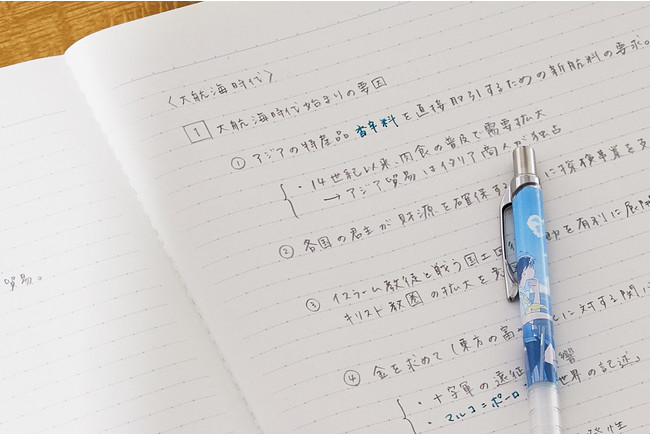 〈大航海時代〉
1 大航海時代始まりの要因
① アジアの特産品 香辛料を直接取引するための新航料の要求。
・14世紀以来、肉食の普及で需要拡大
→ アジア貿易はイタリア商人が独占
② 各国の君主が財源を確保する に探検事業を支
③ イスラーム教徒と戦う国土回 を有利に展開
キリスト教圏の拡大を
貿易。
④ 金を求めて（東方の富 に対する関
・十字軍の遠征 響
・マルコ＝ポーロ 世界の記述」